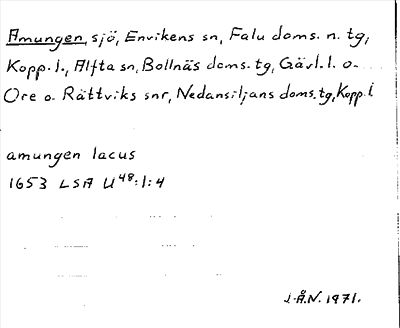 Amungen, sjö, Envikens sn, Falu doms. n. tg,
Kopp. l., Alfta sn, Bollnäs doms. tg, Gävl. l. o.
Ore o. Rättviks snr, Nedansiljans doms. tg, Kopp. l
amungen lacus
1653 LSA U48:1:4
J.Å.N. 1971.